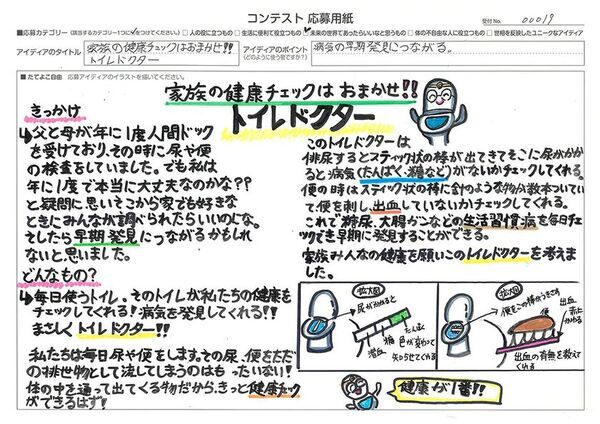 コンテスト 応募用紙
受付No. 00019
■応募カテゴリー(該当するカテゴリー1つに✓をつけてください。) □人の役に立つもの □生活に便利で役立つもの ✓未来の世界であったらいいなと思うもの □体の不自由な人に役立つもの □世相を反映したユニークなアイディア
アイディアのタイトル 家族の健康チェックはおまかせ!!
トイレドクター
アイディアのポイント 病気の早期発見につながる。
(どのように使う物ですか?)
■たてよこ自由 応募アイディアのイラストを描いてください。
家族の健康チェックは おまかせ!!
トイレドクター
きっかけ
↳父と母が年に1度人間ドック
を受けており、その時に尿や便
の検査をしていました。でも私は
年に1度で本当に大丈夫なのかな??
と疑問に思いそこから家でも好きな
ときにみんなが調べられたらいいのにな。
そしたら早期発見につながるかもしれ
ないと思いました。
どんなもの?
↳毎日使うトイレ。そのトイレが私たちの健康を
チェックしてくれる!病気を発見してくれる!!
まさしくトイレドクター!!
私たちは毎日尿や便をします。その尿、便をただ
の排せつ物として流してしまうのはもったいない!
体の中を通って出てくる物だから、きっと健康チェック
ができるはず!
このトイレドクターは
排尿するとスティック状の棒が出てきてそこに尿がかか
ると病気(たんぱく、糖など)がないかチェックしてくれる。
便の時はスティック状の棒に針のような物が数本ついてい
て、便を刺し、出血していないかチェックしてくれる。
これで糖尿、大腸がんなどの生活習慣病を毎日チェ
ックでき早期に発見することができる。
家族みんなの健康を願いこのトイレドクターを考えま
した。
拡大図
尿がかかると
たんぱく
糖
潜血
色が変わって
知らせてくれる
拡大図
便をこの棒がつきさす
便
出血
赤とわかる
出血の有無を教えて
くれる
健康が1番!!